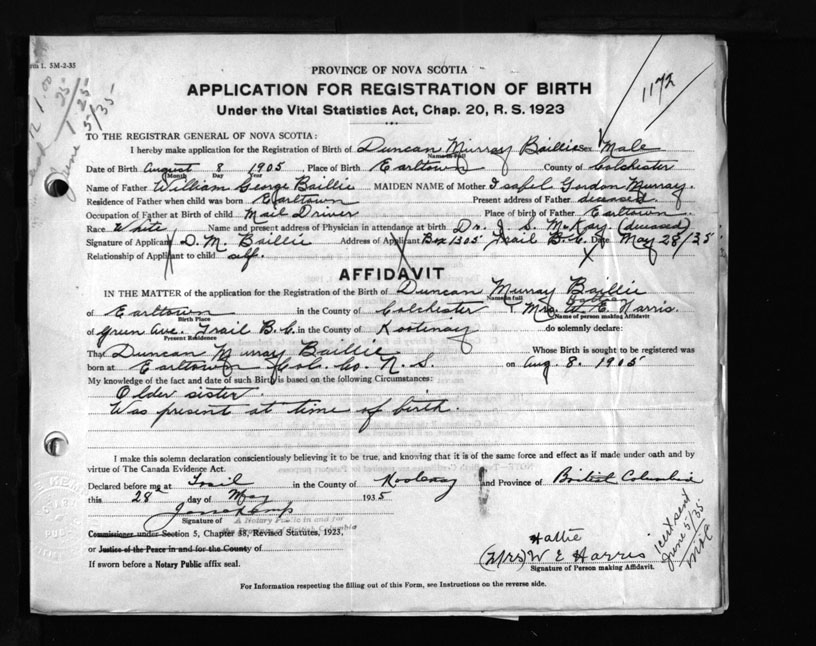 1. 5M-2-35
1172
PROVINCE OF NOVA SCOTIA
APPLICATION FOR REGISTRATION OF BIRTH
Under the Vital Statistics Act, Chap. 20, R. S. 1923
June 5/35
TO THE REGISTRAR GENERAL OF NOVA SCOTIA:
I hereby make application for the Registration of Birth of Duncan Murray Baillie Sex Male
Name in Full
Date of Birth August 8 1905 Place of Birth Earltown County of Colchester
Month Day Year
Name of Father William George Baillie MAIDEN NAME of Mother Isabel Gordon Murray.
Residence of Father when child was born Earltown Present address of Father diseased.
Occupation of Father at Birth of child Mail Driver Place of birth of Father Earltown.
Race White Name and present address of Physician in attendance at birth Dr. J. S. McKay. (deceased)
Signature of Applicant D. M. Baillie Address of Applicant Box 1305 Trail B.C. Date May 28/35.
Relationship of Applicant to child self.
AFFIDAVIT
IN THE MATTER of the application for the Registration of the Birth of Duncan Murray Baillie
Name in full
of Earltown in the County of Colchester Mrs. W. E. Harris.
Birth Place Name of person making Affidavit
of Green Ave. Trail B.C. in the County of Kootenay do solemnly declare:
Present Residence
That Duncan Murray Baillie Whose Birth is sought to be registered was
born at Earltown Col. Co. N. S. on Aug. 8. 1905
My knowledge of the fact and date of such Birth is based on the following Circumstances:
Older sister.
Was present at time of birth.
I make this solemn declaration conscientiously believing it to be true, and knowing that it is of the same force and effect as if made under oath and by
virtue of The Canada Evidence Act.
Declared before me at Trail in the County of Kootenay and Province of British Columbia
this 28 day of May 1935
Signature of A Notary Public in and for
the Province of British Columbia
Commissioner under Section 5, Chapter 38, Revised Statutes, 1923,
or Justice of the Peace in and for the County of
Hattie
(Mrs) W E Harris
If sworn before a Notary Public affix seal.
Signature of Person making Affidavit.
1 cert sent
June 5/35
For Information respecting the filling out of this Form, see Instructions on the reverse side.